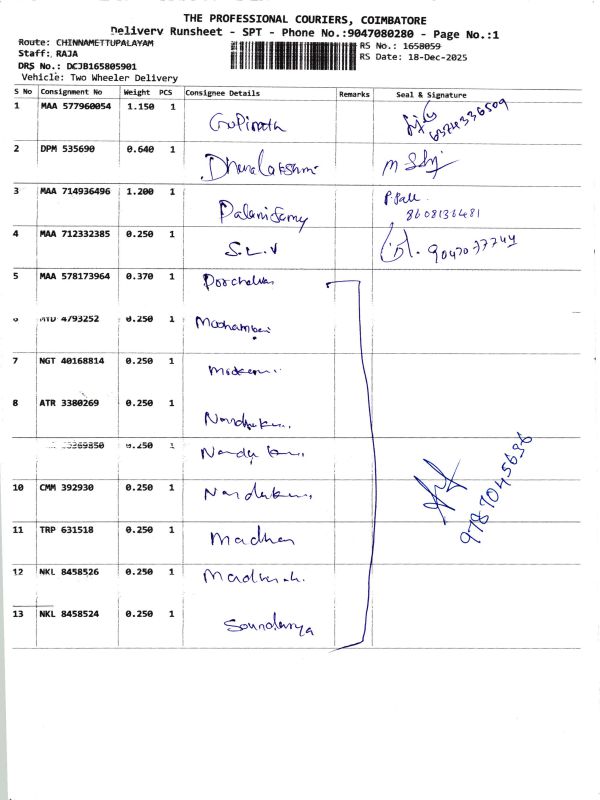 THE PROFESSIONAL COURIERS, COIMBATORE
Delivery Runsheet - SPT - Phone No.:9047080280 - Page No.:1
Route: CHINNAMETTUPALAYAM
RS No.: 1658059
Staff: RAJA
RS Date: 18-Dec-2025
DRS No.: DCJB165805901
Vehicle: Two Wheeler Delivery
S No Consignment No Weight PCS Consignee Details Remarks Seal & Signature
1 MAA 577960054 1.150 1 Gopinath 6374336509
2 DPM 535690 0.640 1 Dhanalakshmi
3 MAA 714936496 1.200 1 Palanisamy 8608136481
4 MAA 712332385 0.250 1 S.L.V 9047077744
5 MAA 578173964 0.370 1
6 4793252 0.250 1
7 NGT 40168814 0.250 1
8 ATR 3380269 0.250 1
0.250 1
10 CMM 392930 0.250 1
11 TRP 631518 0.250 1 Madhan
12 NKL 8458526 0.250 1
13 NKL 8458524 0.250 1 Soundarya
9787045696